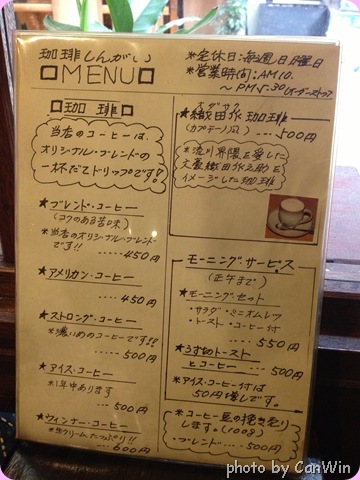 珈琲しんがい
MENU
*定休日:毎週日曜日
*営業時間:AM10.
～PM5.30(オーダーストップ)
珈琲
当店のコーヒーは、
オリジナル・ブレンドの
一杯だてドリップです!
★ブレンド・コーヒー
(コクのある苦味)
*当店のオリジナル・ブレンド
です!!
・・・・・450円
★アメリカン・コーヒー
・・・・・450円
★ストロング・コーヒー
*濃いめのコーヒーです!!
・・・・・500円
★アイス・コーヒー
*1年中あります
・・・・・500円
★ウィンナー・コーヒー
*生クリームたっぷり!!
・・・・600円
オダサク
★織田作珈琲
(カプチーノ風)
・・・・500円
*流川界隈を愛した
文豪織田作之助を
イメージした珈琲
モーニング・サービス
(正午まで)
★モーニング・セット
・サラダ・ミニオムレツ
・トースト・コーヒー付
・・・・550円
★うす切トースト
とコーヒー
・・・500円
*アイス・コーヒー付は
50円増しです。
*コーヒー豆の挽き売り
します。(100g)
ブレンド・・・・・500円
photo by CanWin